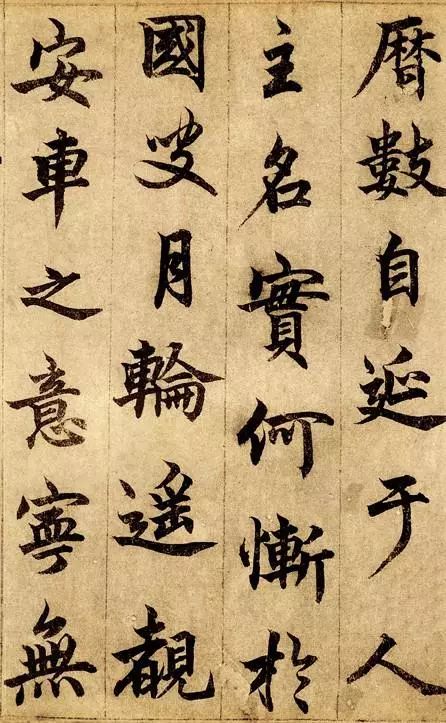 曆數自延于人
主名實何慚於
國叟月輪遥觀
安車之意寧無